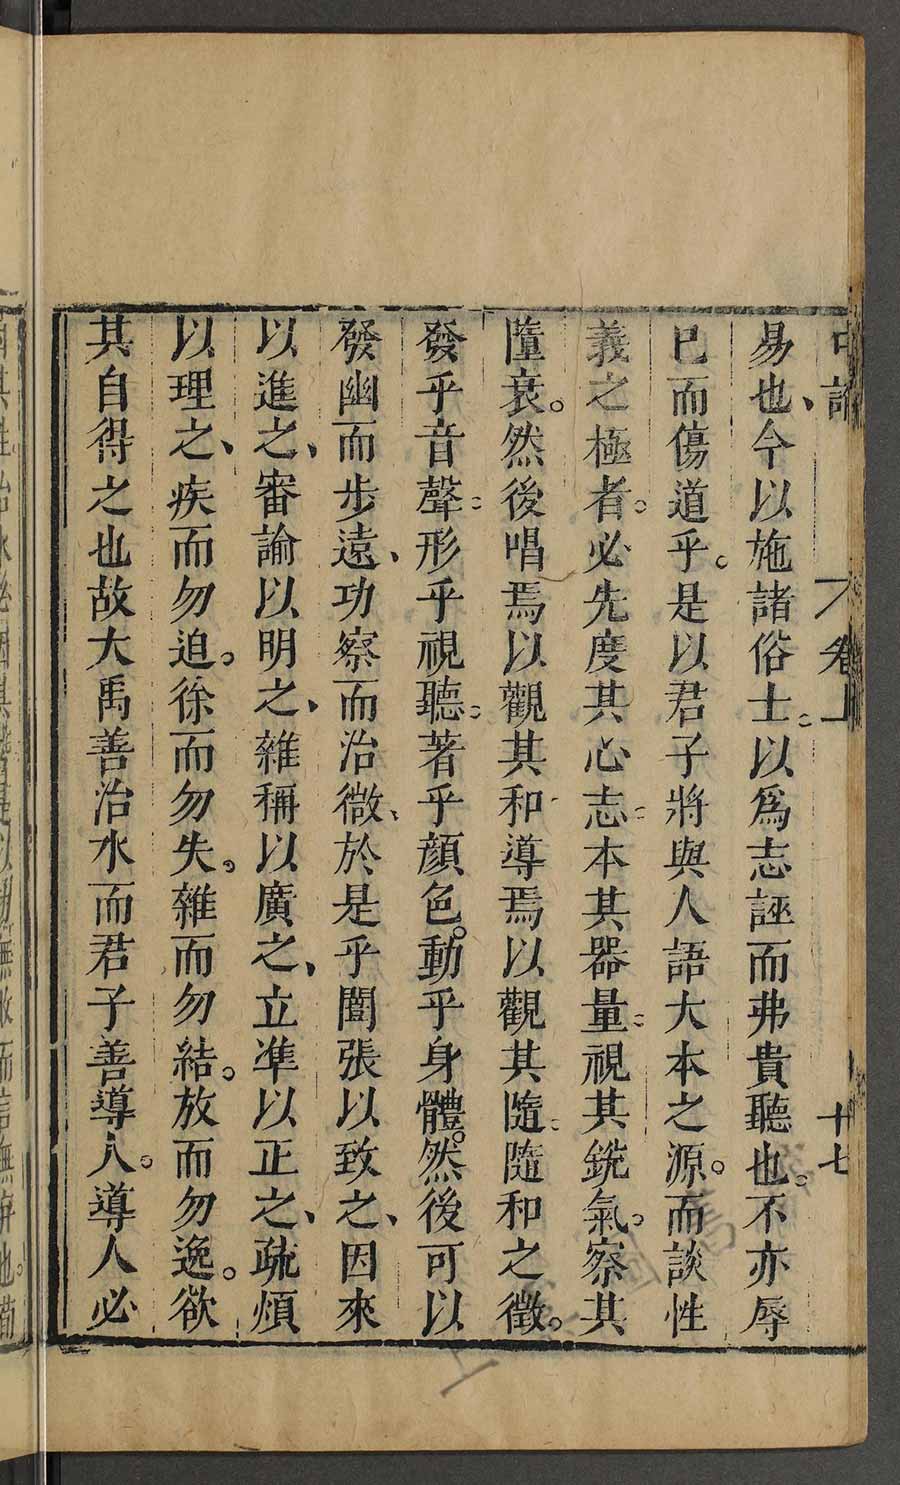 中論 卷上 十七
易也、今以施諸俗士。以爲志誣而弗貴聽也。不亦辱
已而傷道乎。是以君子將與人語大本之源。而談性
義之極者。必先度其心志。本其器量。視其銳氣。察其
墮衰。然後唱焉以觀其和。導焉以觀其隨。隨和之徵。
發乎音聲。形乎視聽。著乎顔色。動乎身體。然後可以
發幽而步遠、功察而治微、於是乎闓張以致之、因來
以進之、審諭以明之、雜稱以廣之、立準以正之、疏煩
以理之、疾而勿迫。徐而勿失。雜而勿結。放而勿逸。欲
其自得之也故大禹善治水而君子善導人。導人必